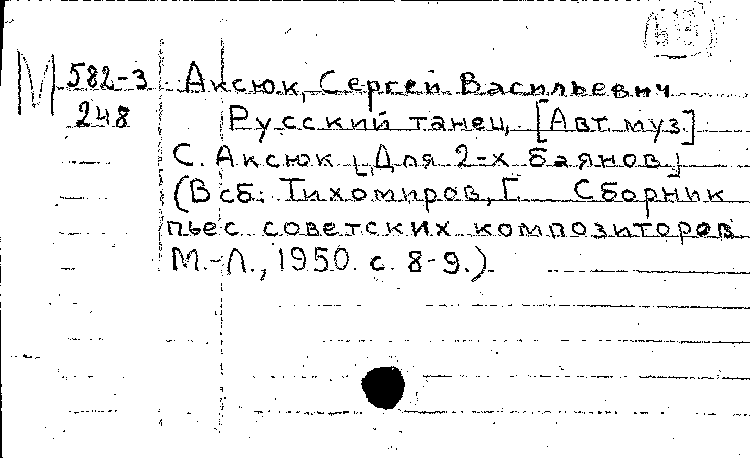 М 582-3 Аксюк, Сергей Васильевич
248 Русский танец, [Авт. муз.]
С. Аксюк [Для 2-х баянов.]
(В сб: Тихомиров, Г. Сборник
пьес советских композиторов
М.-Л., 1950. с. 8-9.)